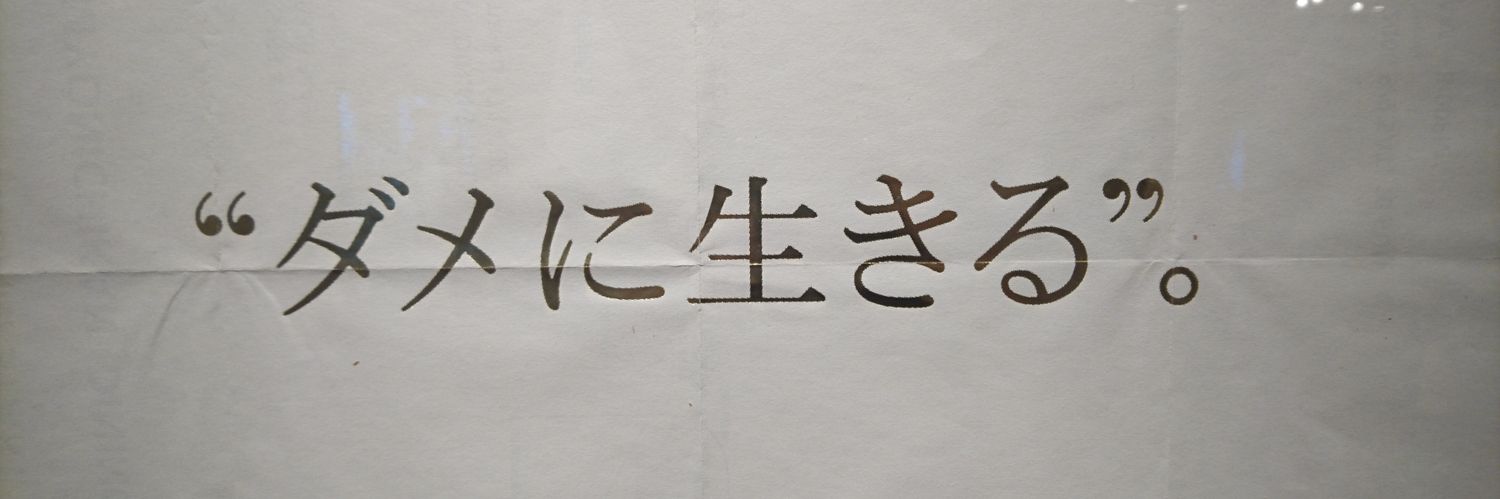 “ダメに生きる”。